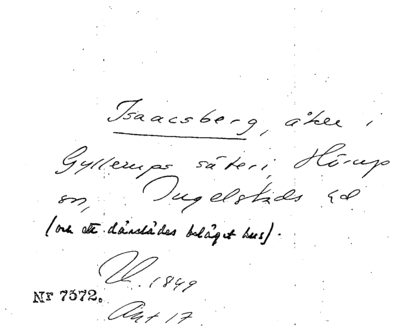 Isaacsberg, åker i
Gyllerups säteri, Hörup
sn, Ingelstads hd
(och ett därstädes beläget hus).
1849
Nr 7372.
Akt 17